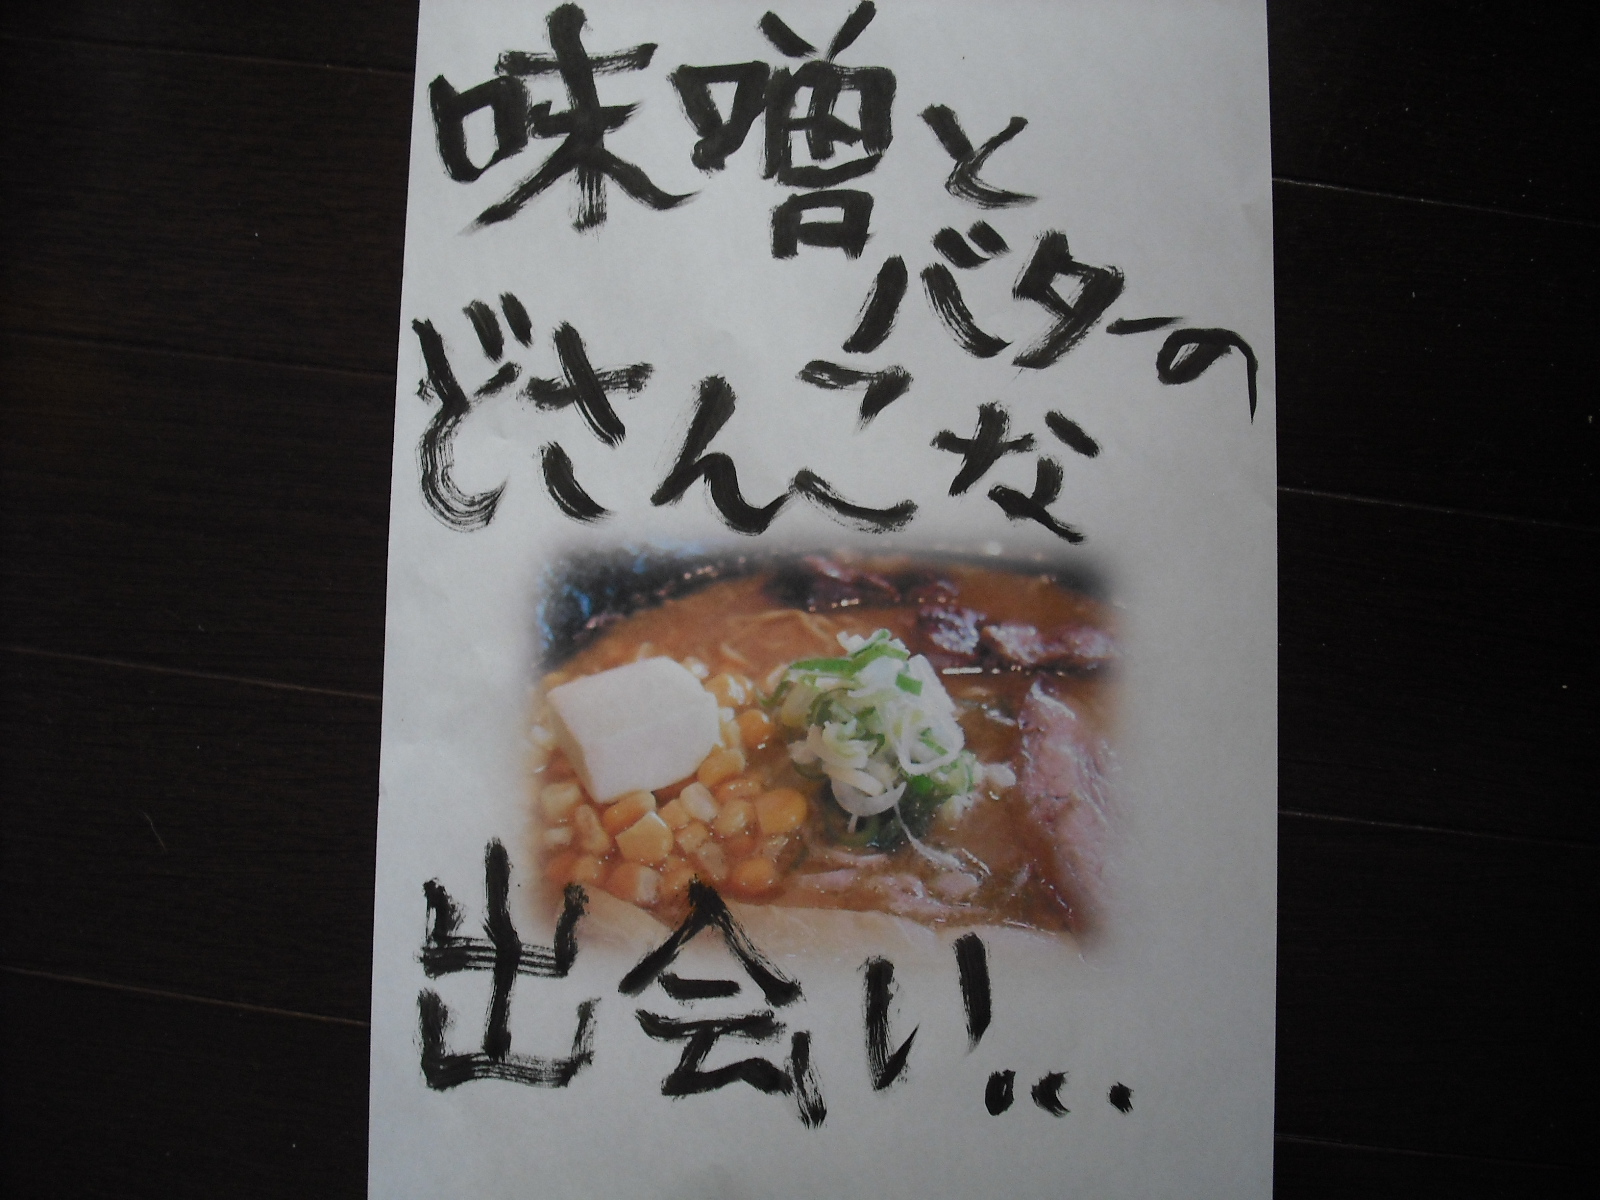 味噌と
バターの
どさんこな
出会い...